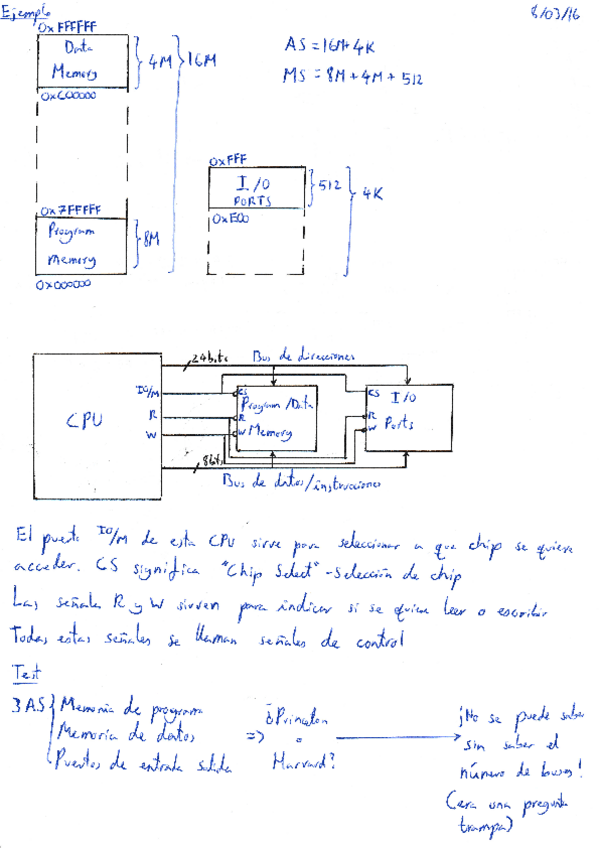 Ejemplo
8/03/16
0xFFFFFF
Data
Memory
4M
16M
0xC00000
AS = 16M + 4K
MS = 8M + 4M + 512
0xFFF
I/O
PORTS
512
4K
0xE00
0x7FFFFF
Program
Memory
8M
0x000000
24bits
Bus de direcciones
CPU
IO/M
R
W
CS
Program/Data
R
W Memory
CS
I/O
R
Ports
W
8bits
Bus de datos/instrucciones
El puerto IO/M de esta CPU sirve para seleccionar a que chip se quiere
acceder. CS significa "Chip Select" - Selección de chip
Las señales R y W sirven para indicar si se quiere leer o escribir
Todas estas señales se llaman señales de control
Test
3 AS
Memoria de programa
Memoria de datos
Puertos de entrada salida
=>
¿Princeton
o
Harvard?
¡No se puede saber
sin saber el
número de buses!
(era una pregunta
trampa)